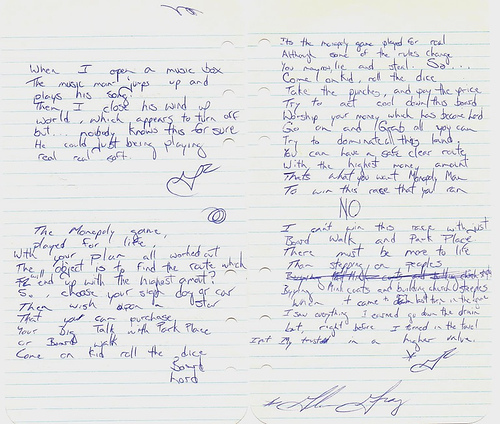 When I open a music box
The music man jumps up and
plays his song
Then I close his wind up
world, which appears to turn off
but... nobody knows this for sure
He could just being playing
real real soft.
The Monopoly game,
played for life,
With your plan all worked out
The object is to find the route which
will end up with the highest amount?
So, choose your sign dog or car
Then wish upon a star
That you can purchase
Your Big Talk with Park Place
or Board walk
Come on kid roll the dice
Board
Lord
Its the monopoly game played for real
Although some of the rules change
You may lie and steal. So....
Come on kid, roll the dice
Take the punches, and pay the price
Try to act cool down this board
Worship your money which has become Lord
Go on and Grab all you can
Try to dominate this land,
You can have a safe clear route
With the highest money amount
Thats what you want Monopoly Man
To win this race that you ran
NO
I can't win this race with just
Board Walk and Park Place
There must be more to life
Than stepping on peoples
Buying mink coats and building church steeples
When I came to button in the
I saw everything I earned go down the drain
but, right before I turned in the towel
I trusted in a higher value.